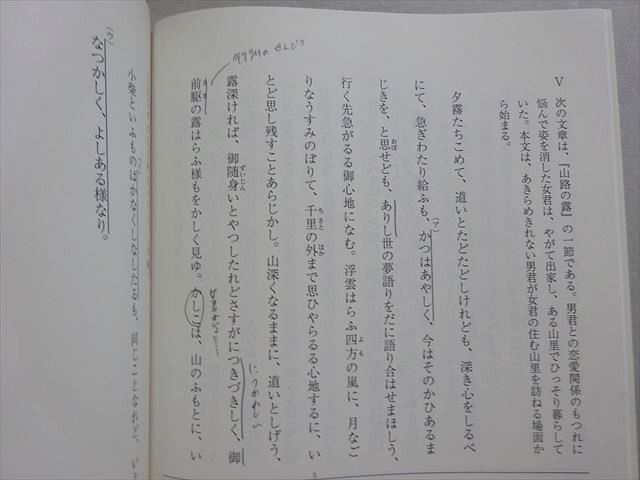 Ⅴ 次の文章は、『山路の露』の一節である。男君との恋愛関係のもつれに
悩んで姿を消した女君は、やがて出家し、ある山里でひっそり暮らして
いた。本文は、あきらめきれない男君が女君の住む山里を訪ねる場面か
ら始まる。
夕霧たちこめて、道いとたどたどしけれども、深き心をしるべ
にて、急ぎわたり給ふも、(ア)かつはあやしく、今はそのかひあるま
じきを、と思せども、ありし世の夢語りをだに語り合はせまほしう、
行く先急がるる御心地になむ。浮雲はらふ四方の嵐に、月なご
りなうすみのぼりて、千里の外まで思ひやらるる心地するに、い
とど思し残すことあらじかし。山深くなるままに、道いとしげう、
露深ければ、御随身いとやつしたれどさすがにつきづきしく、御
前駆の露はらふ様もをかしく見ゆ。かしこは、山のふもとに、い
おぼ
よも
ちさと
ほか
ずいじん
につかわしい
5
小柴といふものはかなくしなしたるも、同じことなれど、い
なつかしく、よしある様なり。